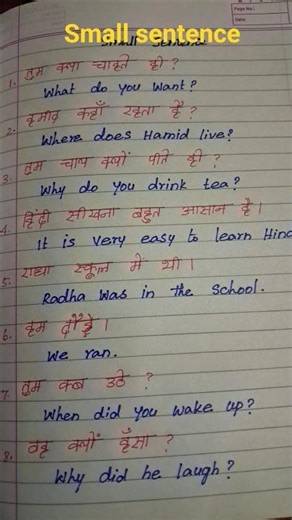 Small sentence
Small Sentence
Page No.:
Date:
1. तुम क्या चाहते हो ?
What do you want?
2. हमीद कहाँ रहता है ?
Where does Hamid live?
3. तुम चाय क्यों पीते हो ?
Why do you drink tea?
4. हिंदी सीखना बहुत आसान है।
It is very easy to learn Hind
5. राधा स्कूल में थी।
Radha was in the School.
6. हम दौड़े।
We ran.
7. तुम कब उठे ?
When did you wake up?
8. वह क्यों हँसा ?
Why did he laugh?